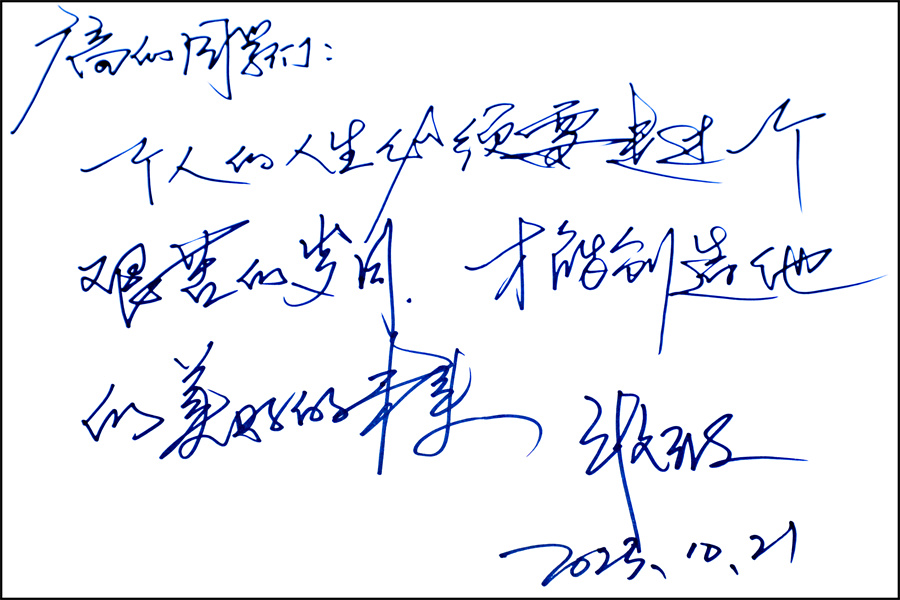 广高的同学们：
一个人的人生必须要走过一个
艰苦的岁月. 才能创造他
的美好的未来
2023、10、21